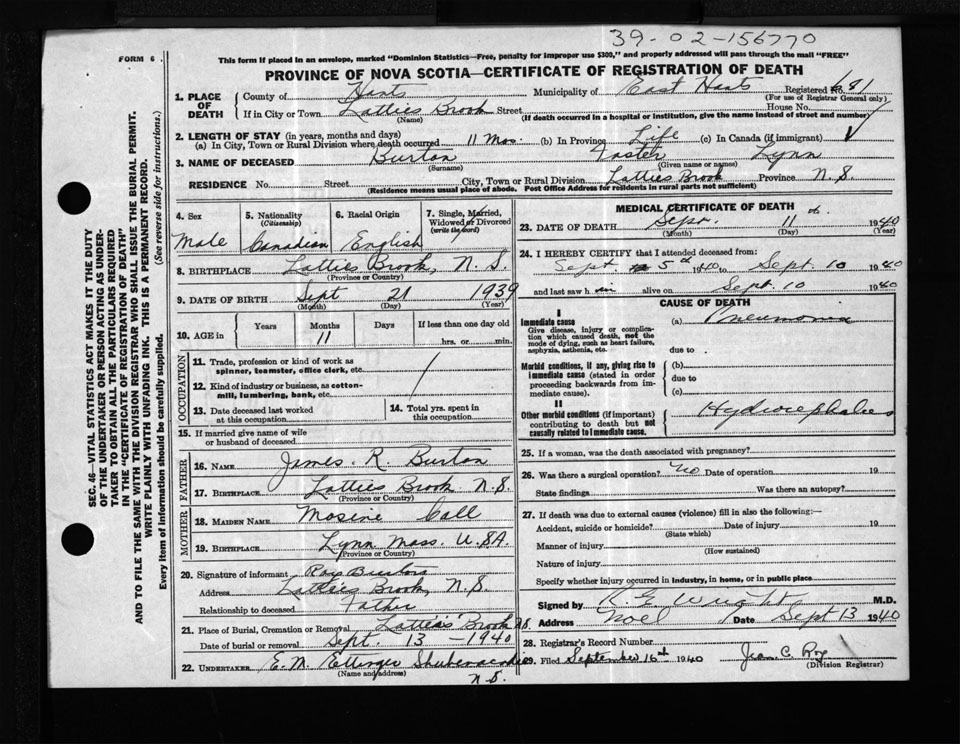 39-02-156770
FORM 6
This form if placed in an envelope, marked "Dominion Statistics—Free, penalty for improper use $300," and properly addressed will pass through the mail "FREE"
PROVINCE OF NOVA SCOTIA—CERTIFICATE OF REGISTRATION OF DEATH
1. PLACE OF DEATH
County of Hants Municipality of East Hants Registered No. 81
(For use of Registrar General only)
If in City or Town Latties Brook Street House No.
(Name) (If death occurred in a hospital or institution, give the name instead of street and number)
2. LENGTH OF STAY (in years, months and days)
(a) In City, Town or Rural Division where death occurred 11 Mos. (b) In Province Life (c) In Canada (if immigrant)
3. NAME OF DECEASED Burton Foster Lynn
(Surname) (Given name or names)
RESIDENCE No. Street City, Town or Rural Division Latties Brook Province N.S.
(Residence means usual place of abode. Post Office Address for residents in rural parts not sufficient)
4. Sex Male
5. Nationality (Citizenship) Canadian
6. Racial Origin English
7. Single, Married, Widowed or Divorced (write the word)
8. BIRTHPLACE Latties Brook, N.S.
(Province or Country)
9. DATE OF BIRTH Sept 21 1939
(Month) (Day) (Year)
10. AGE in Years Months Days If less than one day old
11 hrs. or min.
OCCUPATION
11. Trade, profession or kind of work as spinner, teamster, office clerk, etc.
12. Kind of industry or business, as cotton-mill, lumbering, bank, etc.
13. Date deceased last worked at this occupation
14. Total yrs. spent in this occupation
15. If married give name of wife or husband of deceased
FATHER
16. NAME James R Burton
17. BIRTHPLACE Latties Brook N.S.
(Province or Country)
MOTHER
18. MAIDEN NAME Call
19. BIRTHPLACE Lynn Mass. U.S.A.
(Province or Country)
20. Signature of informant Roy Burton
Address Latties Brook, N.S.
Relationship to deceased Father
21. Place of Burial, Cremation or Removal Latties Brook N.S.
Date of burial or removal Sept. 13 - 1940
22. UNDERTAKER E.M. Ettinger Shubenacadie
(Name and address)
N.S.
MEDICAL CERTIFICATE OF DEATH
23. DATE OF DEATH Sept. 11th 1940
(Month) (Day) (Year)
24. I HEREBY CERTIFY that I attended deceased from:
Sept 5th 1940 to Sept. 10 1940
and last saw h im alive on Sept. 10 1940
CAUSE OF DEATH
I
Immediate cause (a) Pneumonia
Give disease, injury or complication which caused death, not the mode of dying, such as heart failure, asphyxia, asthenia, etc.
due to
Morbid conditions, if any, giving rise to immediate cause (stated in order proceeding backwards from immediate cause).
(b)
due to
(c)
II
Other morbid conditions (if important) contributing to death but not causally related to immediate cause.
Hydrocephalus
25. If a woman, was the death associated with pregnancy?
26. Was there a surgical operation? No Date of operation 19
State findings Was there an autopsy?
27. If death was due to external causes (violence) fill in also the following:—
Accident, suicide or homicide? Date of injury 19
(State which)
Manner of injury
(How sustained)
Nature of injury
Specify whether injury occurred in industry, in home, or in public place
Signed by R G Wright M.D.
Address Noel Date Sept 13 1940
28. Registrar's Record Number
29. Filed September 16th 1940 Jean C. Roy
(Division Registrar)
SEC. 46—VITAL STATISTICS ACT MAKES IT THE DUTY
OF THE UNDERTAKER OR PERSON ACTING AS UNDER-
TAKER TO OBTAIN ALL THE PARTICULARS REQUIRED
IN THE "CERTIFICATE OF REGISTRATION OF DEATH"
AND TO FILE THE SAME WITH THE DIVISION REGISTRAR WHO SHALL ISSUE THE BURIAL PERMIT.
WRITE PLAINLY WITH UNFADING INK. THIS IS A PERMANENT RECORD.
Every item of information should be carefully supplied. (See reverse side for instructions.)